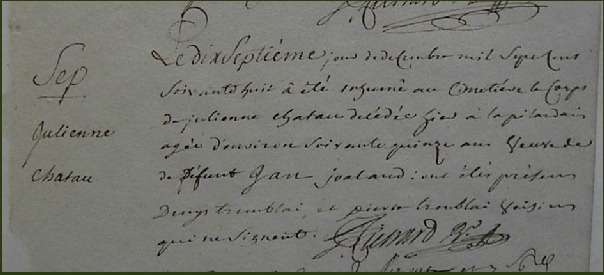 Sep
Julienne
chatau
Le dix Septiéme jour de decembre mil Sept Cens
Soixante huit à été inhumé au Cimetiére le Corps
de julienne chatau décédée hier à la pilardais
agée d'environ soixante quinze ans Veuve de
de défunt Jan joaland : ont étés présens
Denys tremblai, et pierre tremblai Voisins
qui ne Signent.